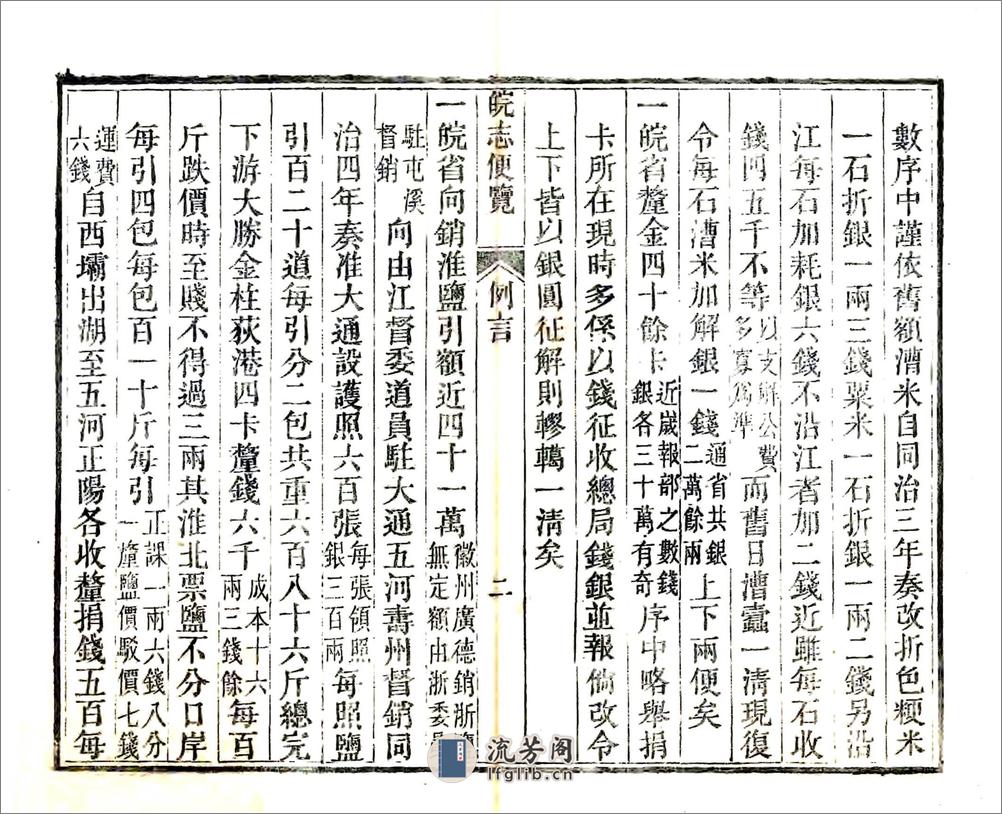 數序中謹依舊額漕米自同治三年奏改折色粳米
一石折銀一兩三錢粟米一石折銀一兩二錢另沿
江每石加耗銀六錢不沿江者加二錢近雖每石收
錢四五千不等以支解公費多寡爲準而舊日漕蠹一清現復
令每石漕米加解銀一錢通省共銀二萬餘兩上下兩便矣
一皖省釐金四十餘卡近歲報部之數錢銀各三十萬有奇序中略舉捐
卡所在現時多係以錢征收總局錢銀並報倘改令
上下皆以銀圓征解則轇轕一清矣
皖志便覽 例言 二
一皖省向銷淮鹽引額近四十一萬徽州廣德銷浙鹽無定額由浙委員
駐屯溪督銷向由江督委道員駐大通五河壽州督銷同
治四年奏准大通設護照六百張每張領照銀三百兩每照鹽
引百二十道每引分二包共重六百八十六斤總完
下游大勝金柱荻港四卡釐錢六千成本十六兩三錢餘每百
斤跌價時至賤不得過三兩其淮北票鹽不分口岸
每引四包每包百一十斤每引正課一兩六錢八分一釐鹽價駁價七錢
運費六錢自西壩出湖至五河正陽各收釐捐錢五百每
流芳阁
lfglib.cn